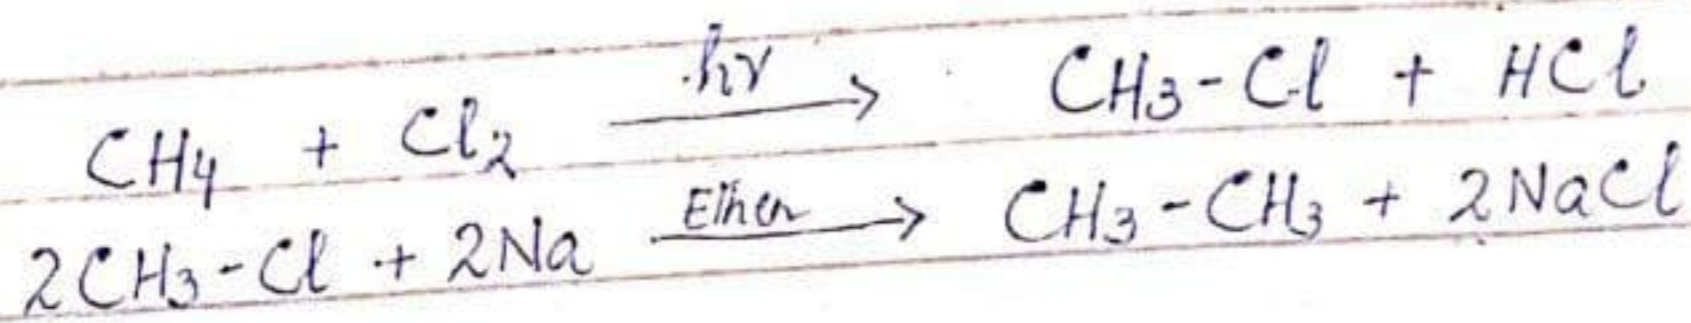 CH4 + Cl2 hν → CH3-Cl + HCl
2CH3-Cl + 2Na Ether → CH3-CH3 + 2NaCl